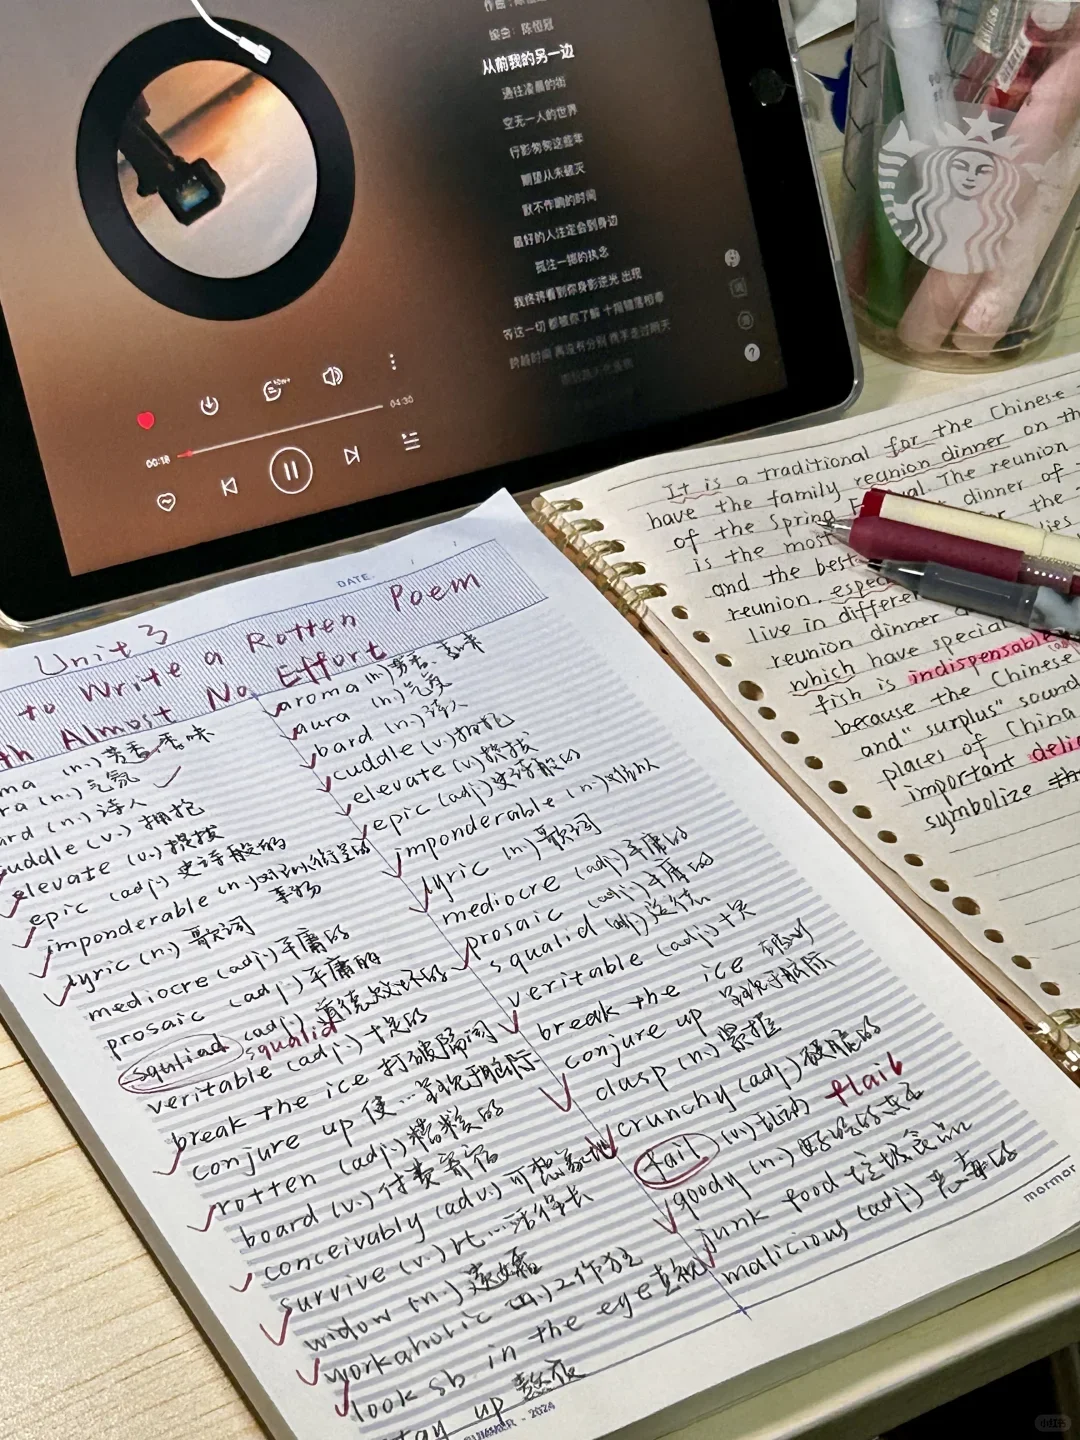 编曲：陈恒冠
从前我的另一边
通往凌晨的街
空无一人的世界
行影匆匆这些年
期望从未破灭
默不作响的时间
最好的人注定会到身边
孤注一掷的执念
我终将看到你身影逆光 出现
等这一切 都被你了解 十指错落相牵
跨越时间 再没有分别 携手走过明天
00:18
04:30
?
DATE.
Unit 3
to Write a Rotten Poem
th Almost No Effort
ma (n.) 芳香 香味
ra (n.) 气氛
ard (n.) 诗人
cuddle (v.) 拥抱
elevate (v.) 提拔
epic (adj.) 史诗般的
imponderable (n.)
lyric (n.) 歌词
mediocre (adj.) 平庸的
prosaic (adj.) 平庸的
squliad (adj.) 道德败坏的
squalid
veritable (adj.) 十足的
break the ice 打破隔阂
conjure up 使…
rotten (adj.) 糟糕的
board (v.) 付费寄宿
conceivably (adv.)
survive (v.) 比…活得长
widow (n.)
workaholic (n.) 工作狂
look sb in the eye 直视
stay up 熬夜
SUMMER - 2024
aroma (n.) 芳香、
aura (n.) 气氛
bard (n.) 诗人
cuddle (v.) 拥抱
elevate (v.) 提拔
epic (adj.) 史诗般的
imponderable (n.)
lyric (n.) 歌词
mediocre (adj.) 平庸的
prosaic (adj.) 平庸的
squalid (adj.) 道德
veritable (adj.) 十足
break the ice
conjure up
clasp (n.) 紧握
crunchy (adj.) 硬脆的
fail (v.) 乱动 flail
goody (n.) 好吃的东西
junk food 垃圾食品
malicious (adj.) 恶毒的
mormor
It is a traditional for the Chinese
have the family reunion dinner on th
of the Spring Fe val. The reunion
is the most dinner of
and the best for the
reunion. espec lies
live in differen
reunion dinner
which have special
fish is indispensable
because the Chinese
and "surplus" sound
places of China
important deli
symbolize
mormor